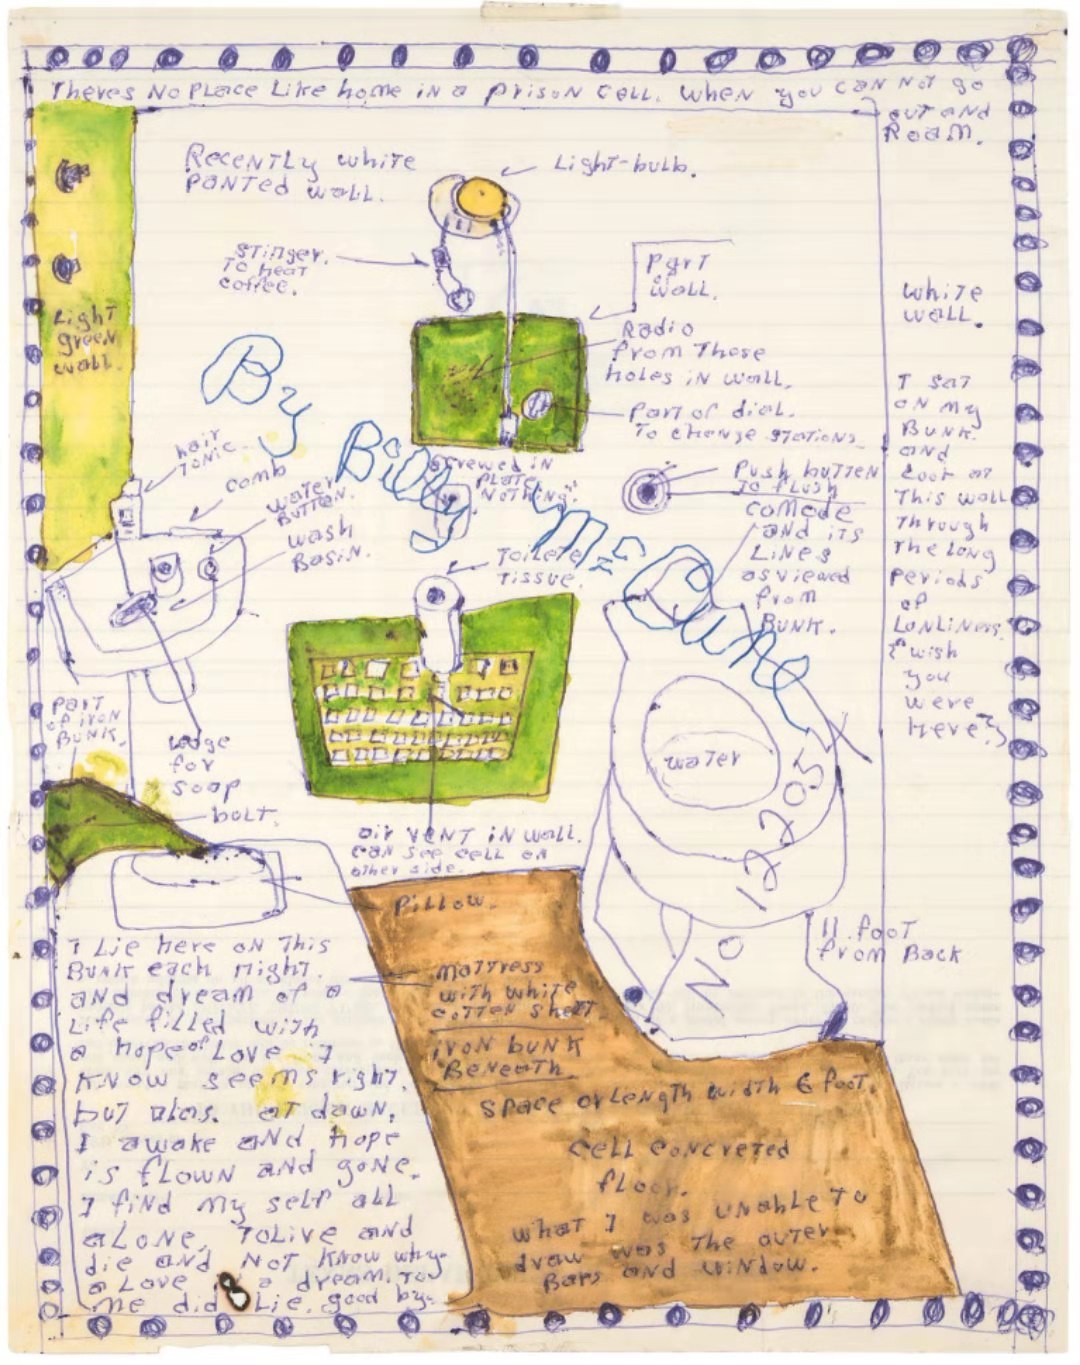 Theres No Place Like home in a Prison Cell. When you can Not go
out and
Roam.
Recently white
panted wall.
Light-bulb.
Stinger.
To heat
coffee.
Part
wall.
Light
green
wall.
Radio
from Those
holes in wall.
Part of dial.
To change stations.
White
wall.
I sat
on my
Bunk.
and
Look at
This wall
Through
The Long
Periods
of
Lonliness.
I wish
you
were
here?
By
Billy
McCune
hair
Tonic.
comb
water
Button.
wash
Basin.
screwed in
plate
"Nothing"
Push butten
To flush
comode
and its
Lines
as viewed
from
Bunk.
Toilete
Tissue.
Part
of iron
Bunk.
Ledge
for
soap
bolt.
water
No 12205
air vent in wall.
can see cell on
other side.
Pillow.
11 foot
from Back
Mattress
with white
cotten sheet.
iron bunk
Beneath.
Space or Length width 6 foot.
Cell concreted
floor.
What I was unable To
draw was The outer
Bars and window.
I Lie here on This
Bunk each night.
and dream of a
Life filled with
a hope of Love I
know seems right.
but alas. at dawn.
I awake and hope
is flown and gone.
I find my self all
alone. To Live and
die and Not know why.
a Love a dream. To
me did Lie. good by.